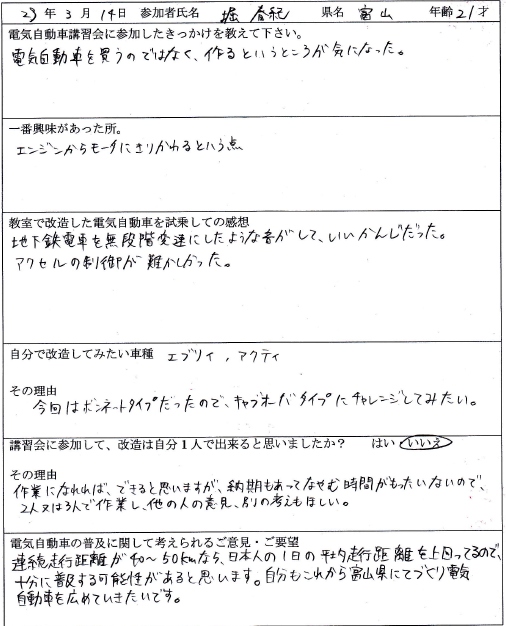 23年3月14日 参加者氏名 堀 春紀 県名 富山 年齢21才
電気自動車講習会に参加したきっかけを教えて下さい。
電気自動車を買うのではなく、作るというところが気になった。
一番興味があった所。
エンジンからモータにきりかわるという点
教室で改造した電気自動車を試乗しての感想
地下鉄電車を無段階変速にしたような音がして、いいかんじだった。
アクセルの制御が難かしかった。
自分で改造してみたい車種 エブリィ , アクティ
その理由
今回はボンネットタイプだったので、キャブオーバタイプにチャレンジしてみたい。
講習会に参加して、改造は自分1人で出来ると思いましたか? はい いいえ
その理由
作業になれれば、できると思いますが、納期もあってなやむ時間がもったいないので、
2人又は3人で作業し、他の人の意見、別の考えもほしい。
電気自動車の普及に関して考えられるご意見・ご要望
連続走行距離が40~50kmなら、日本人の1日の平均走行距離を上回ってるので、
十分に普及する可能性があると思います。自分もこれから富山県にてづくり電気
自動車を広めていきたいです。